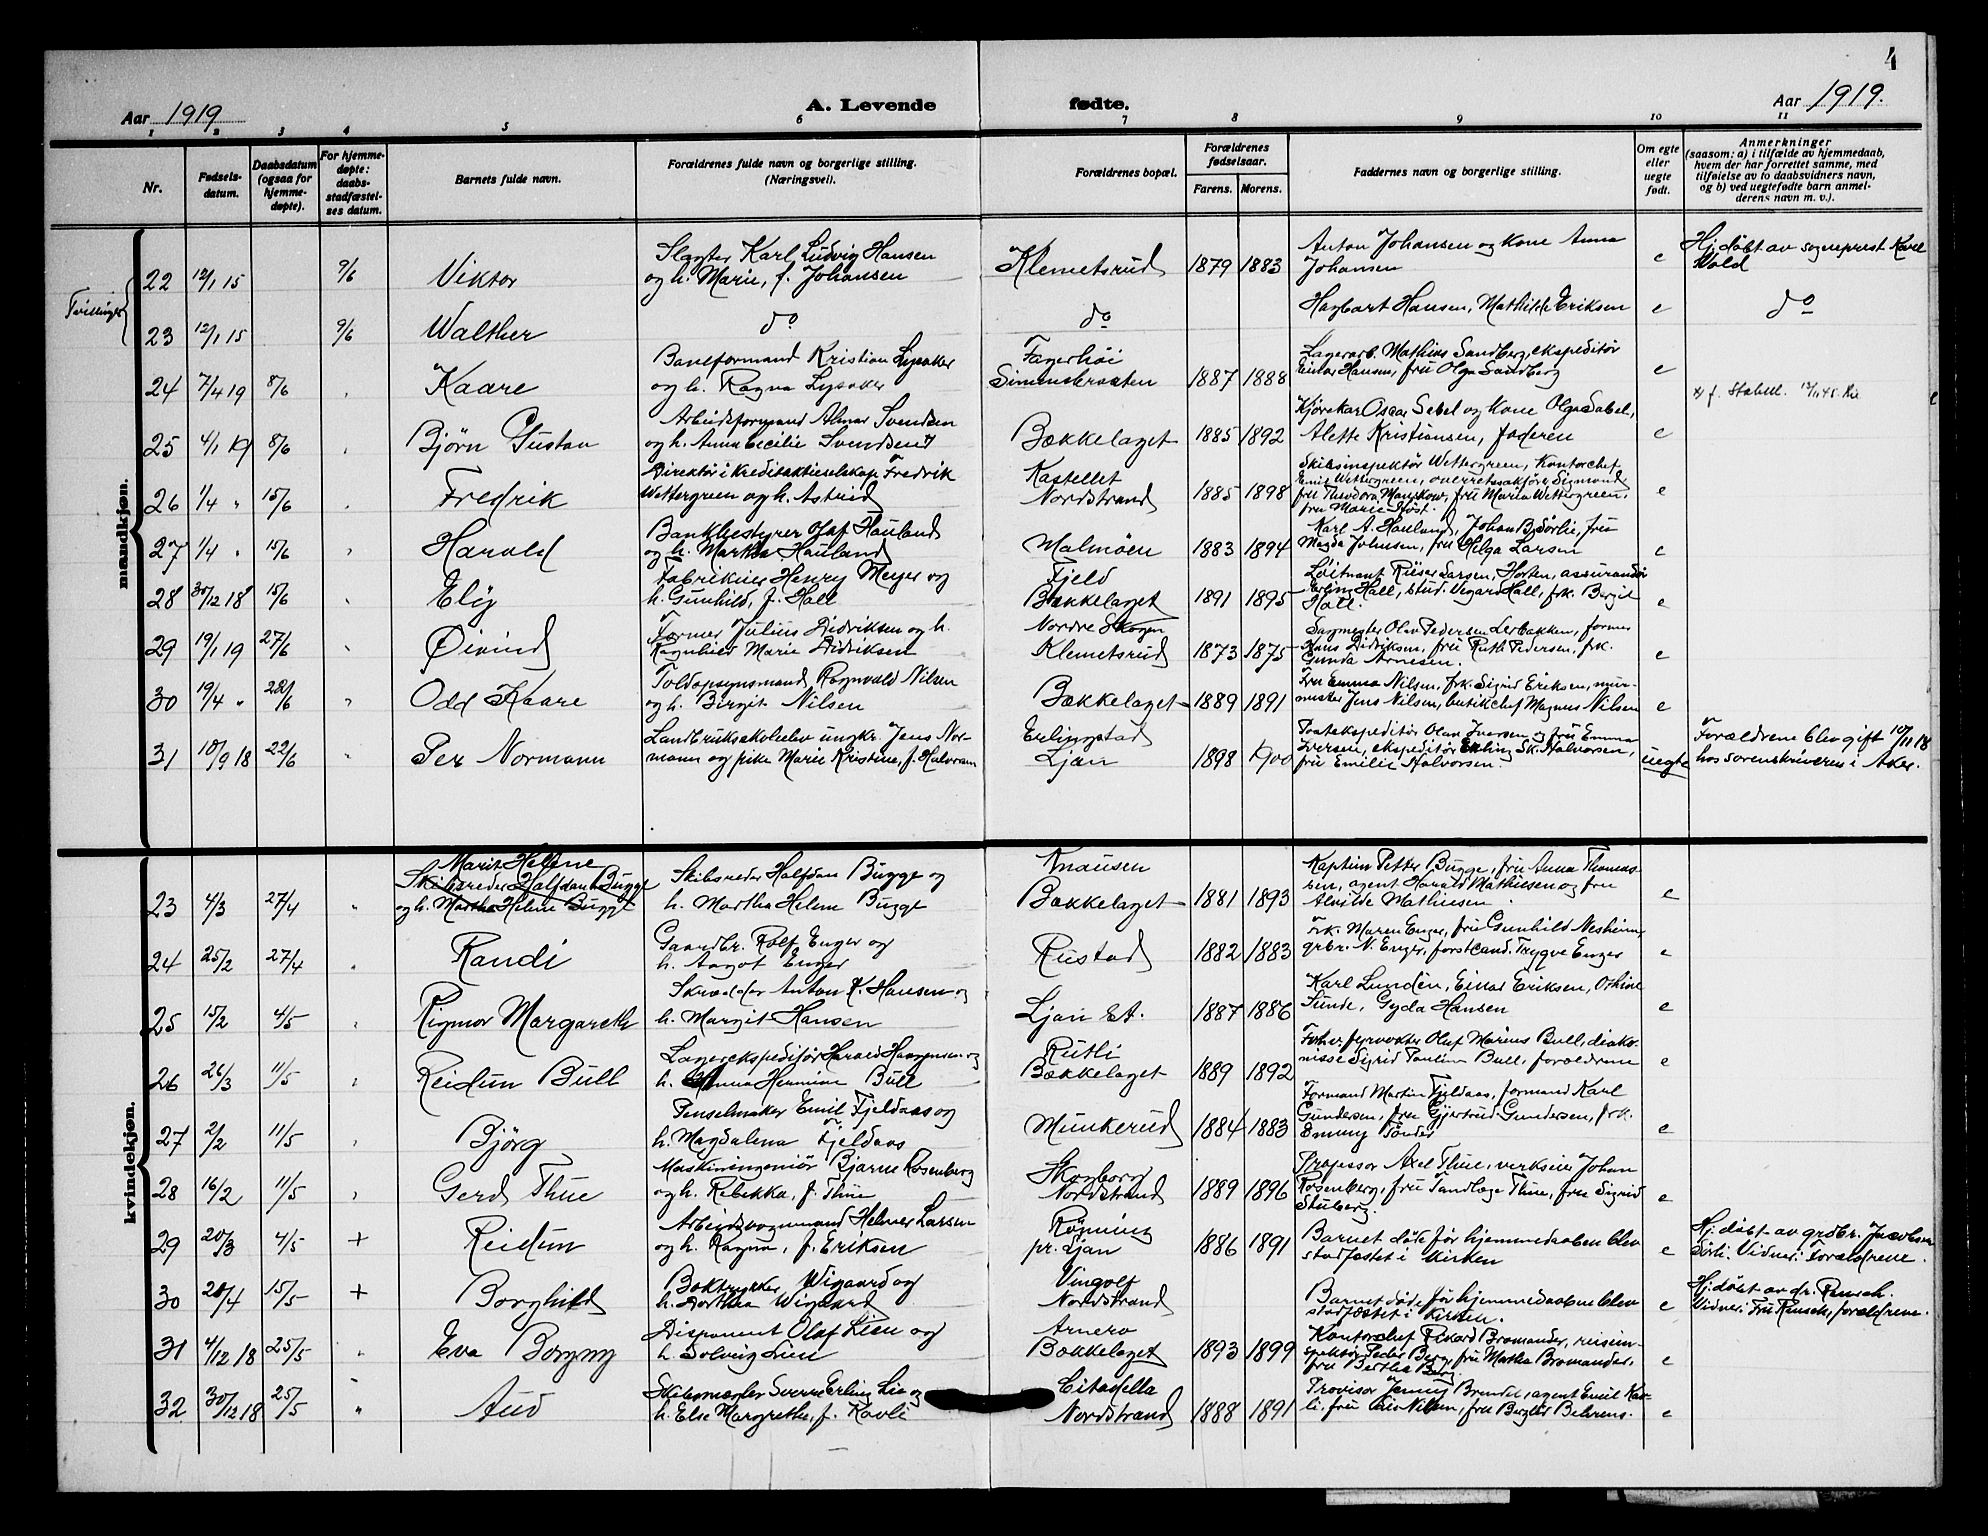 4
Aar 1919
A. Levende fødte.
Aar 1919.
1 2 3 4 5 6 7 8 9 10 11
Nr.
Fødsels-
datum.
Daabsdatum
(ogsaa for
hjemme-
døpte).
For hjemme-
døpte:
daabs-
stadfæstel-
ses datum.
Barnets fulde navn.
Forældrenes fulde navn og borgerlige stilling.
(Næringsvei).
Forældrenes bopæl.
Forældrenes
fødselsaar.
Farens. Morens.
Faddernes navn og borgerlige stilling.
Om egte
eller
uegte
født.
Anmerkninger
(saasom: a) i tilfælde av hjemmedaab,
hvem der har forrettet samme, med
tilføielse av to daabsvidners navn,
og b) ved uegtefødte barn anmel-
derens navn m. v.).
mandkjøn.
Tvillinger
22 12/1 15 9/6 Viktor
Slagter Karl Ludvig Hansen
og h. Marie, f. Johansen
Klemetsrud 1879 1883
Anton Johansen og Kone Anna
Johansen
e
Hj. døbt av sogneprest Karel
Wold
23 12/1 15 9/6 Walther
do
do
Hagbart Hansen, Mathilde Eriksen
e
do
24 7/4 19 8/6 Kaare
Baneformand Kristian Lysaker
og h. Ragna Lysaker
Fagerhøi
Simensbraaten 1887 1888
Lagerarb. Mathias Sandberg, ekspeditør
Einar Hansen, fru Olga Sandberg
e
25 4/1 19 8/6 Bjørn Gustav
Arbeidsformand Almar Svendsen
og h. Anna Cecilie Svendsen
Bækkelaget 1885 1892
Kjørekar Oscar Sebel og Kone Olga Sabel,
Alette Kristiansen, faderen
e
26 1/4 " 15/6 Fredrik
Direktør i Kreditaktieselskap Fredrik
Wettergreen og h. Astrid
Kastellet
Nordstrand 1885 1898
Skibsinspektør Wettergreen, Kontorchef
Emil Wettergreen, overretssakfører Sigmund
fru Theodora Manskow, fru Maria Wettergreen,
fru Marie Høst.
e
27 1/4 " 15/6 Harald
Bankbestyrer Olaf Hauland
og h. Martha Hauland
Malmøen 1883 1894
Karl A. Hauland, Johan B. Sørlie, fru
Magda Johnsen, fru Helga Larsen
e
28 30/12 18 15/6 Elij
Fabrikeier Henry Meyer og
h. Gunhild, f. Hall
Fjeld
Bækkelaget 1891 1895
Løitnant Riiser Larsen, Horten, assurandør
Erling Hall, stud. Vegard Hall, frk. Bergit
Hall.
e
29 19/1 19 27/6 Øivind
Former Julius Didriksen og h.
Ragnhild Marie Didriksen
Nordre Skogen
Klemetsrud 1873 1875
Sagmester Olav Pedersen Lerbakken, former
Hans Didriksen, fru Ruth Pedersen, frk.
Gunda Arnesen.
e
30 19/4 " 22/6 Odd Kaare
Toldopsynsmand Ragnvald Nilsen
og h. Birgit Nilsen
Bækkelaget 1889 1891
Fru Emma Nilsen, frk. Sigrid Eriksen, mur-
mester Jens Nilsen, butikchef Magnus Nilsen
e
31 10/9 18 22/6 Per Normann
Landbruksskoleelev ungkr. Jens Nor-
mann og pike Marie Kristine, f. Halvorsen
Erlingstad
Ljan 1898 1900
Postekspeditør Olav Iversen og fru Emma
Iversen, ekspeditør Erling Sk. Halvorsen,
fru Emilie Halvorsen.
uegte
Forældrene blev gift 10/11 18
hos sorenskriveren i Aker.
kvindekjøn.
23 4/3 27/4
Marit Helene
Skibsreder Halfdan Bugge
og h. Martha Helene Bugge
Skibsreder Halfdan Bugge og
h. Martha Helene Bugge
Knausen
Bækkelaget 1881 1893
Kaptein Petter Bugge, fru Anna Thomas-
sen, agent Harald Mathiesen og fru
Alvilde Mathiesen
e
24 25/2 27/4 Randi
Gaardbr. Rolf Enger og
h. Aagot Enger
Rustad 1882 1883
Frk. Maren Enger, fru Gunhild Nesheim,
grbr. N. Enger, forstcand. Trygve Enger
e
25 15/2 4/5 Rigmor Margareth
Skrædder Anton K. Hansen og
h. Margit Hansen
Ljan st. 1887 1886
Karl Lundén, Einar Eriksen, Oshine
Sunde, Gyda Hansen
e
26 26/3 11/5 Reidun Bull
Lagerekspeditør Harald Haagensen og
h. Anna Hermine Bull
Rutli
Bækkelaget 1889 1892
Forh.v. fyrvokter Oluf Marius Bull, diako-
nisse Sigrid Pauline Bull, forældrene
e
27 2/2 11/5 Bjørg
Penselmaker Emil Fjeldaas og
h. Magdalena Fjeldaas
Munkerud 1884 1883
Formand Martin Fjeldaas, formand Karl
Gundersen, fru Gjertrud Gundersen, frk.
Emmy Tønder
e
28 16/2 11/5 Gerd Thue
Maskiningeniør Bjarne Rosenberg
og h. Rebekka, f. Thue
Skogborg
Nordstrand 1889 1896
Professor Axel Thue, verkseier Johan
Rosenberg, fru Tandlæge Thue, fru Sigrid
Stuberg.
e
29 20/3 4/5 + Reidun
Arbeidsvognmand Helmer Larsen
og h. Ragna, f. Eriksen
Rømning
pr. Ljan 1886 1891
Barnet døde før hjemmedaaben blev
stadfæstet i kirken
e
Hj. døbt av grdbr. Jacobsen
Sørli. Vidner: Forældrene.
30 20/4 15/5 + Borghild
Boktrykker Wigaard og
h. Dorthea Wigaard
Vingolf
Nordstrand
Barnet døde før hjemmedaaben blev
stadfæstet i kirken.
e
Hj. døbt av dr. Rensch.
Vidner: Fru Rensch, forældrene.
31 4/12 18 25/5 Eva Borgny
Disponent Olaf Lien og
h. Solveig Lien
Arnero
Bækkelaget 1893 1899
Kontorchef Rikard Bromander, reisein-
spektør Peder Berg, fru Matha Bromander,
fru Bertha Berg.
e
32 30/12 18 25/5 Aud
Skibsmægler Sverre Erling Lie og
h. Else Margrethe, f. Kavli
Citadella
Nordstrand 1888 1891
Provisor Jenny Brendel, agent Emil Kav-
li, fru Nilsen, fru Bergliot Behrens.
e